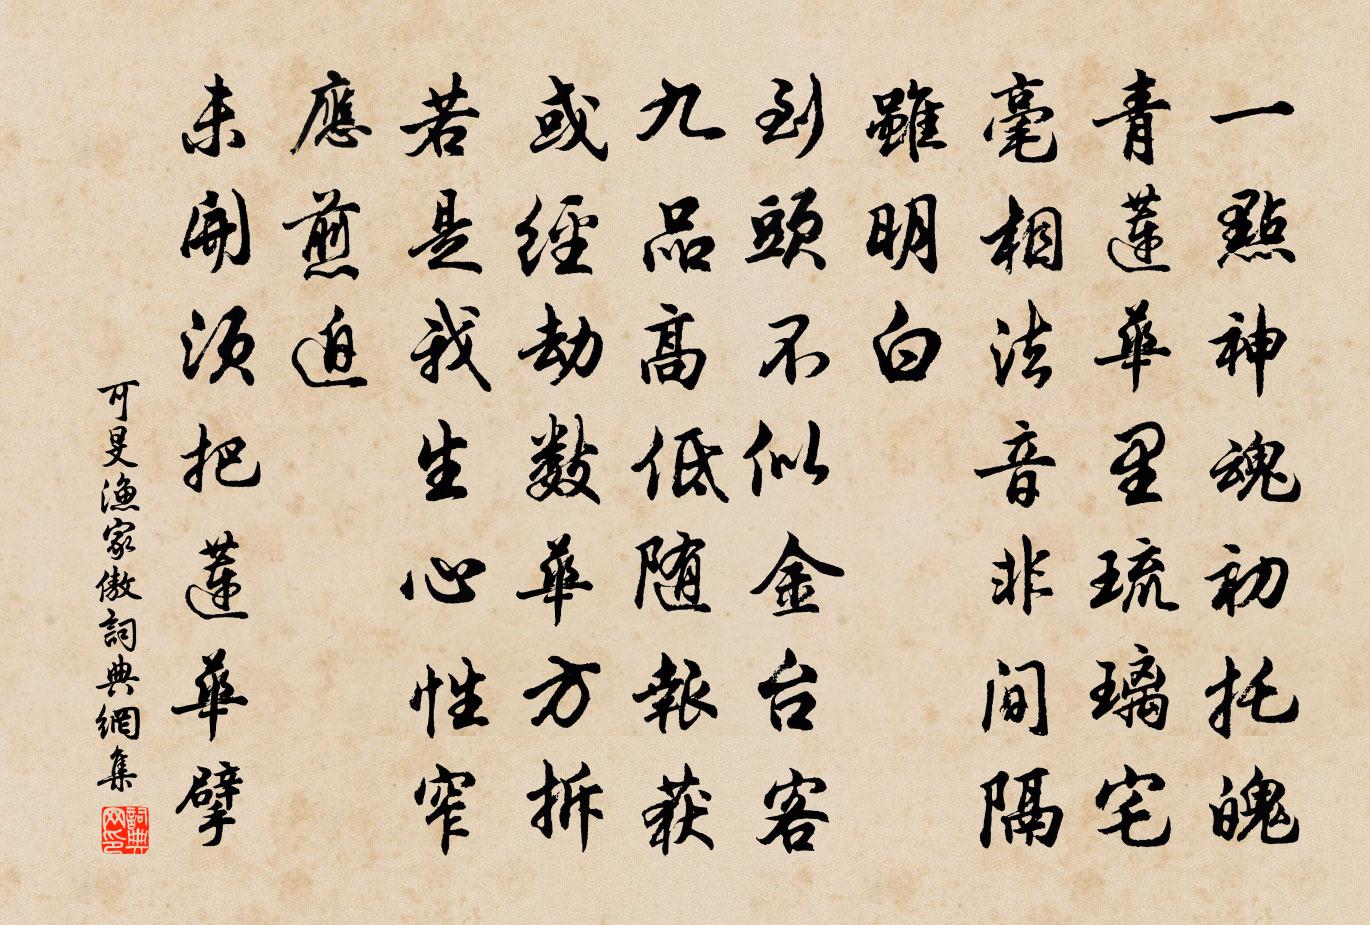 一點神魂初托魄
青蓮華里琉璃宅
毫相法音非间隔
雖明白
到頭不似金台客
九品高低随報获
或經劫數華方拆
若是我生心性窄
應煎迫
未開须把蓮華擘
可旻渔家傲詞典網集
詞典网印